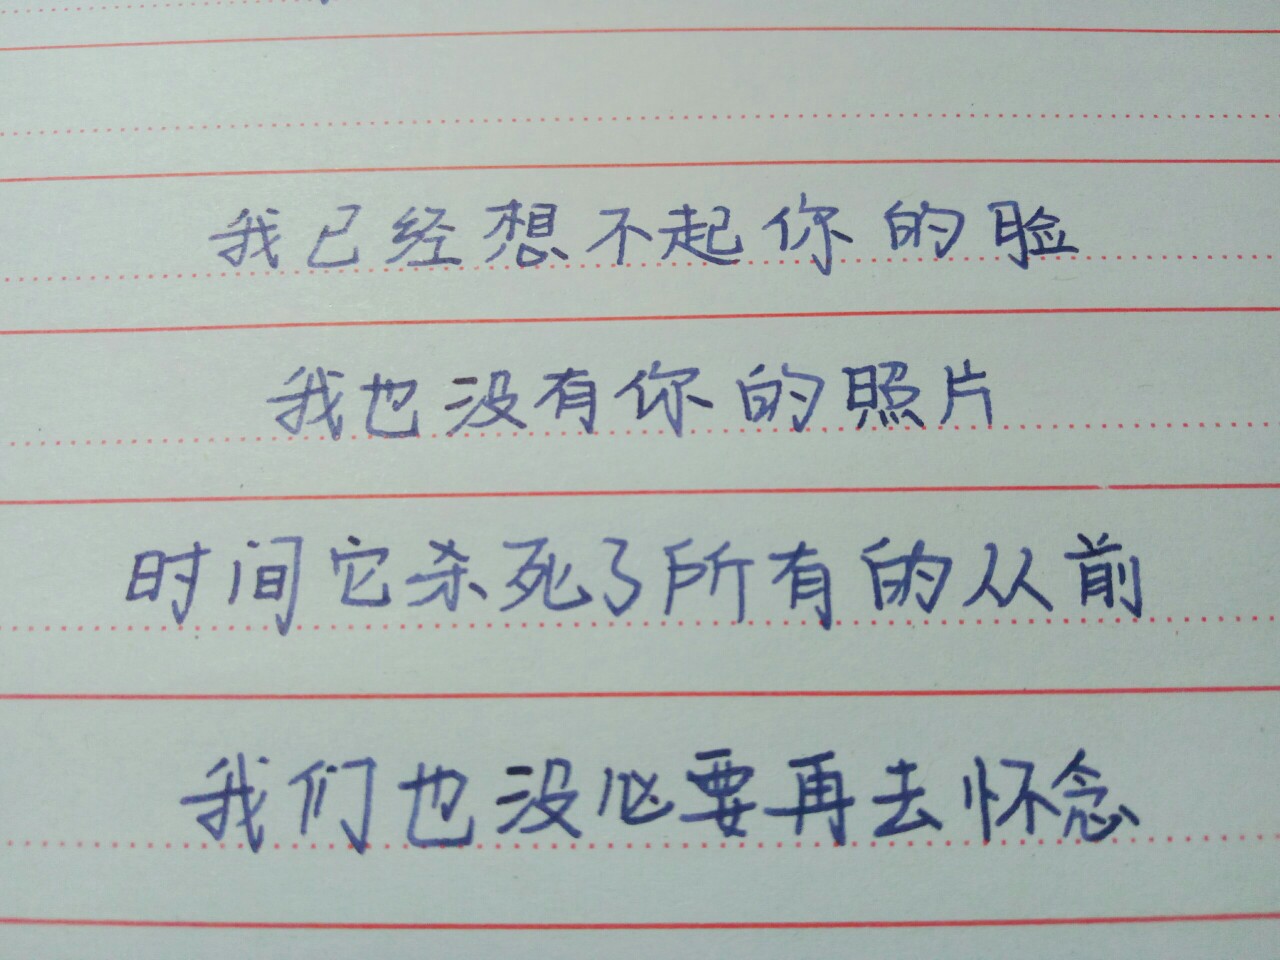 我已经想不起你的脸
我也没有你的照片
时间它杀死了所有的从前
我们也没必要再去怀念